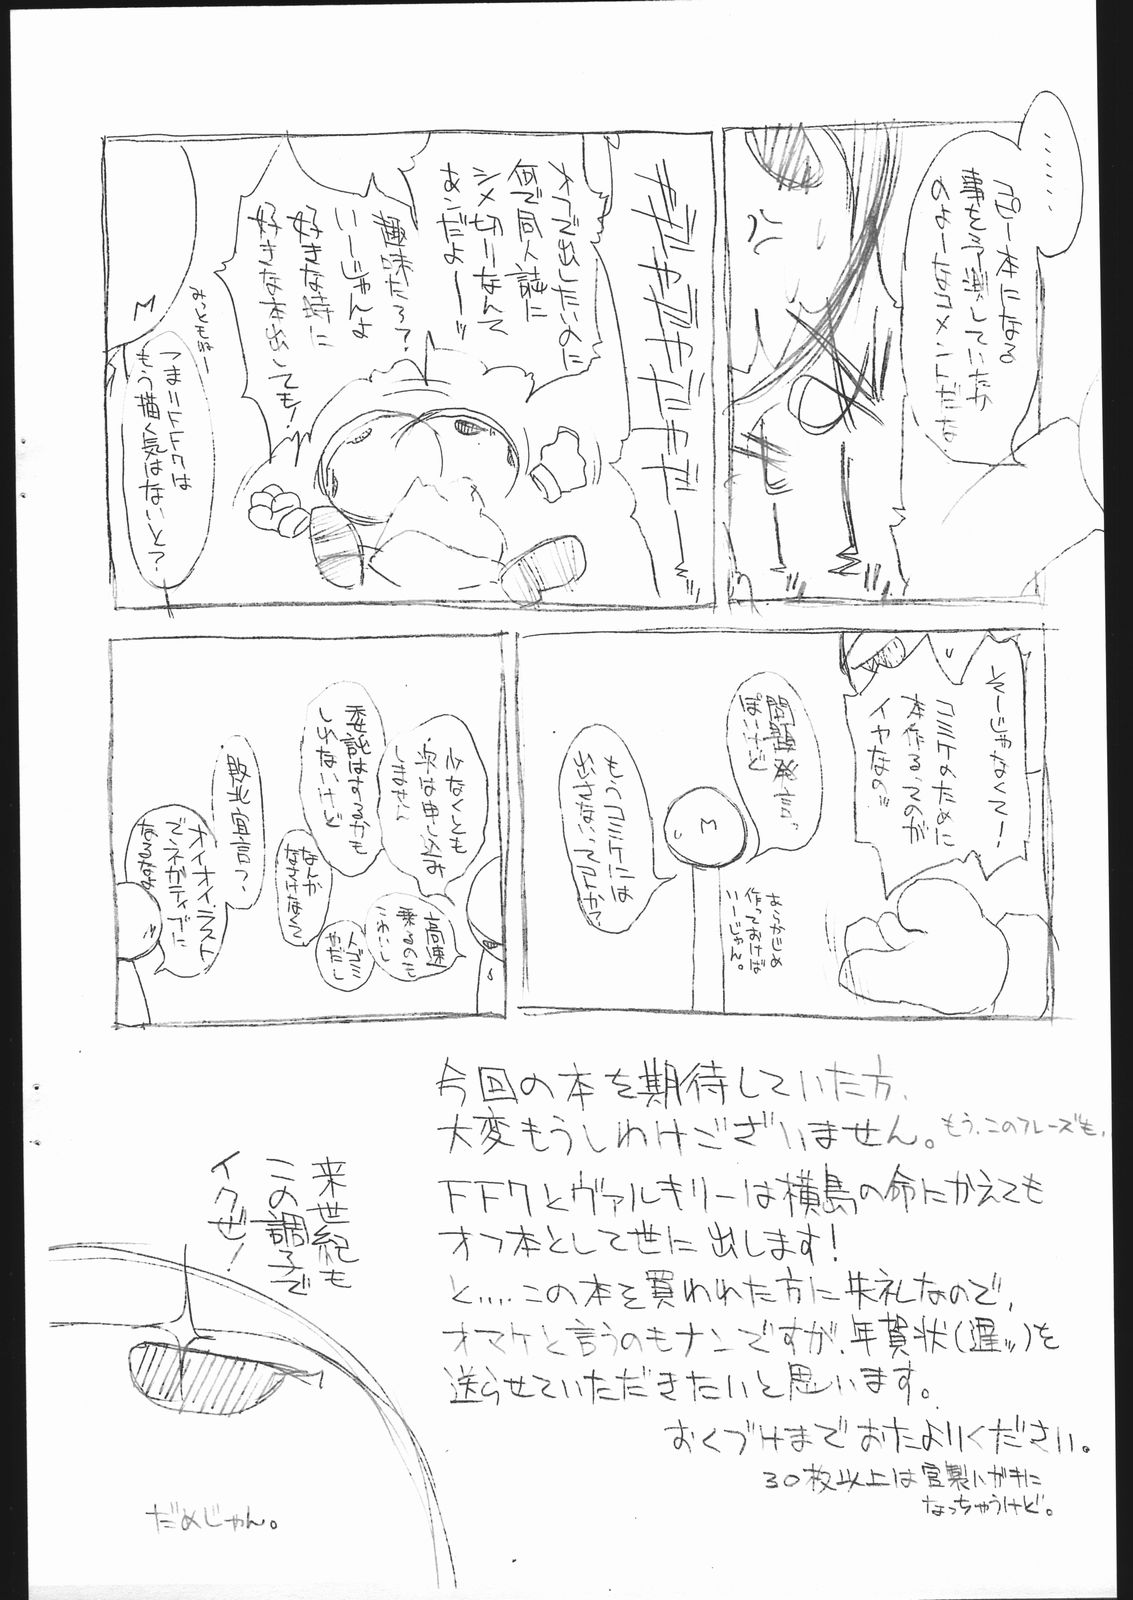 ・・・・・・
コピー本になる
事を予測していたか
のよーなコメントだな
ヤダヤダヤダヤダヤー
オフで出したいのに
何で同人誌に
シメ切りなんて
あンだよーッ
趣味だろ?
いーじゃんよ
好きな時に
好きな本出しても!
みっともねー
M
つまりFFクは
もう描く気はないと?
そーじゃなくてー
コミケのために
本作る、ってのが
イヤなの
問題発言っ
ぽいけど
M
もうコミケには
出さない、てコトか?
あらかじめ
作っておけば
いーじゃん。
少なくとも
次は申し込み
しません
委託はするかも
しれないけど
高速
乗るのも
こわいし
人ゴミ
やだし
なんか
なさけなくて
敗北宣言?
オイオイ、ラスト
でネガティブに
なるなよ
今回の本を期待していた方、
大変もうしわけございません。もう、このフレーズも、
FFクとヴァルキリーは横島の命にかえても
オフ本として世に出します!
と....この本を買われた方に失礼なので、
オマケと言うのもナンですが、年賀状(遅ッ)を
送らせていただきたいと思います。
おくづけまでおたよりください。
30枚以上は官製ハガキに
なっちゃうけど。
来世紀も
この調子で
イクぜ!
だめじゃん。